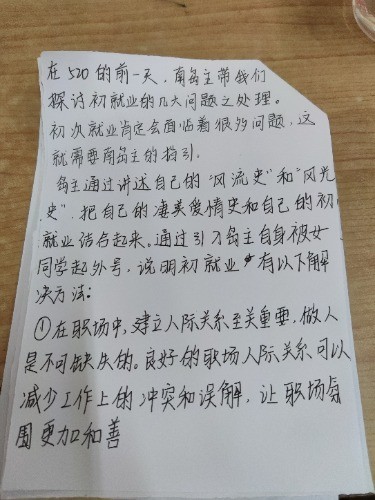 在520的前一天,南岛主带我们
探讨初就业的几大问题之处理。
初次就业肯定会面临着很多问题,这
就需要南岛主的指引.
岛主通过讲述自己的"风流史"和"风光
史",把自己的凄美爱情史和自己的初
就业结合起来。通过引入岛主自身被女
同学起外号,说明初就业有以下解
决方法:
①在职场中,建立人际关系至关重要,做人
是不可缺失的。良好的职场人际关系可以
减少工作上的冲突和误解,让职场氛
围更加和善